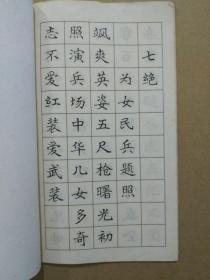 七绝
为女民兵题照
飒爽英姿五尺槍曙光初
照演兵场中华儿女多奇
志不爱红装爱武装